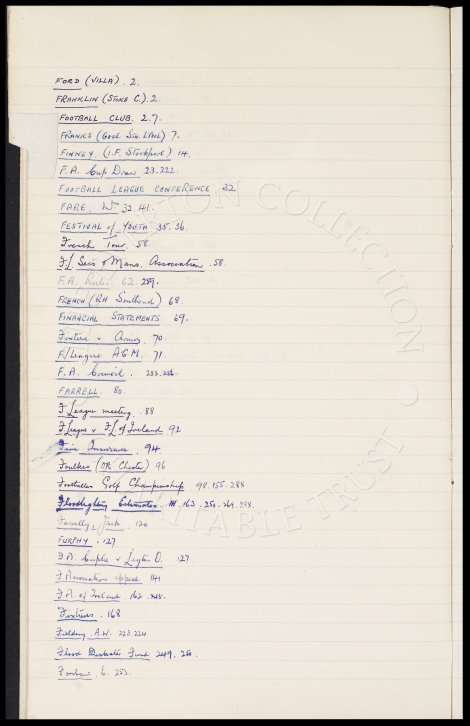 FORD (VILLA). 2.
FRANKLIN (STOKE C.) 2.
FOOTBALL CLUB. 2.7.
FRANKS (Good Sth. LPool) 7.
FINNEY. (I.F. Stockport) 14.
F.A. Cup Draw 23.222.
FOOTBALL LEAGUE CONFERENCE. 32
FARE. W 32.141.
FESTIVAL of YOUTH 35.36.
French Tour. 58.
F/L Secs & Mans. Association. 58.
F.A. Rules. 62. 259.
FRENCH (RH Southend) 68.
FINANCIAL STATEMENTS 69.
70.
F/League A.G.M. 71.
F.A. Council. 253.256.
FARRELL. 80.
F League meeting. 88
F League & F.L. of Ireland 92
Fire Insurance. 94
Faulkes (OR Chester) 96
Footballers Golf Championship 98.155.288
Floodlighting Estimates. 163.
Farrelly, Jack. 120
FURPHY. 127
F.A. Cuptie v Leyton O. 127.
F Association appeal 141
F.A. of Ireland 162.
Fixtures. 168
Fielding. A.W. 223.224
Flood Disaster Fund 249.
E. 253.